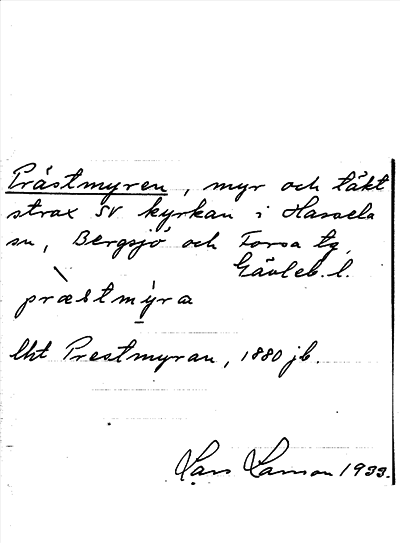 Prästmyren, myr och täkt
strax SV kyrkan i Hassela
sn, Bergsjö och Forsa tg,
Gävleb. l.
præstmýra
lht Prestmyran, 1880 jb.
Lars Larsson 1933.